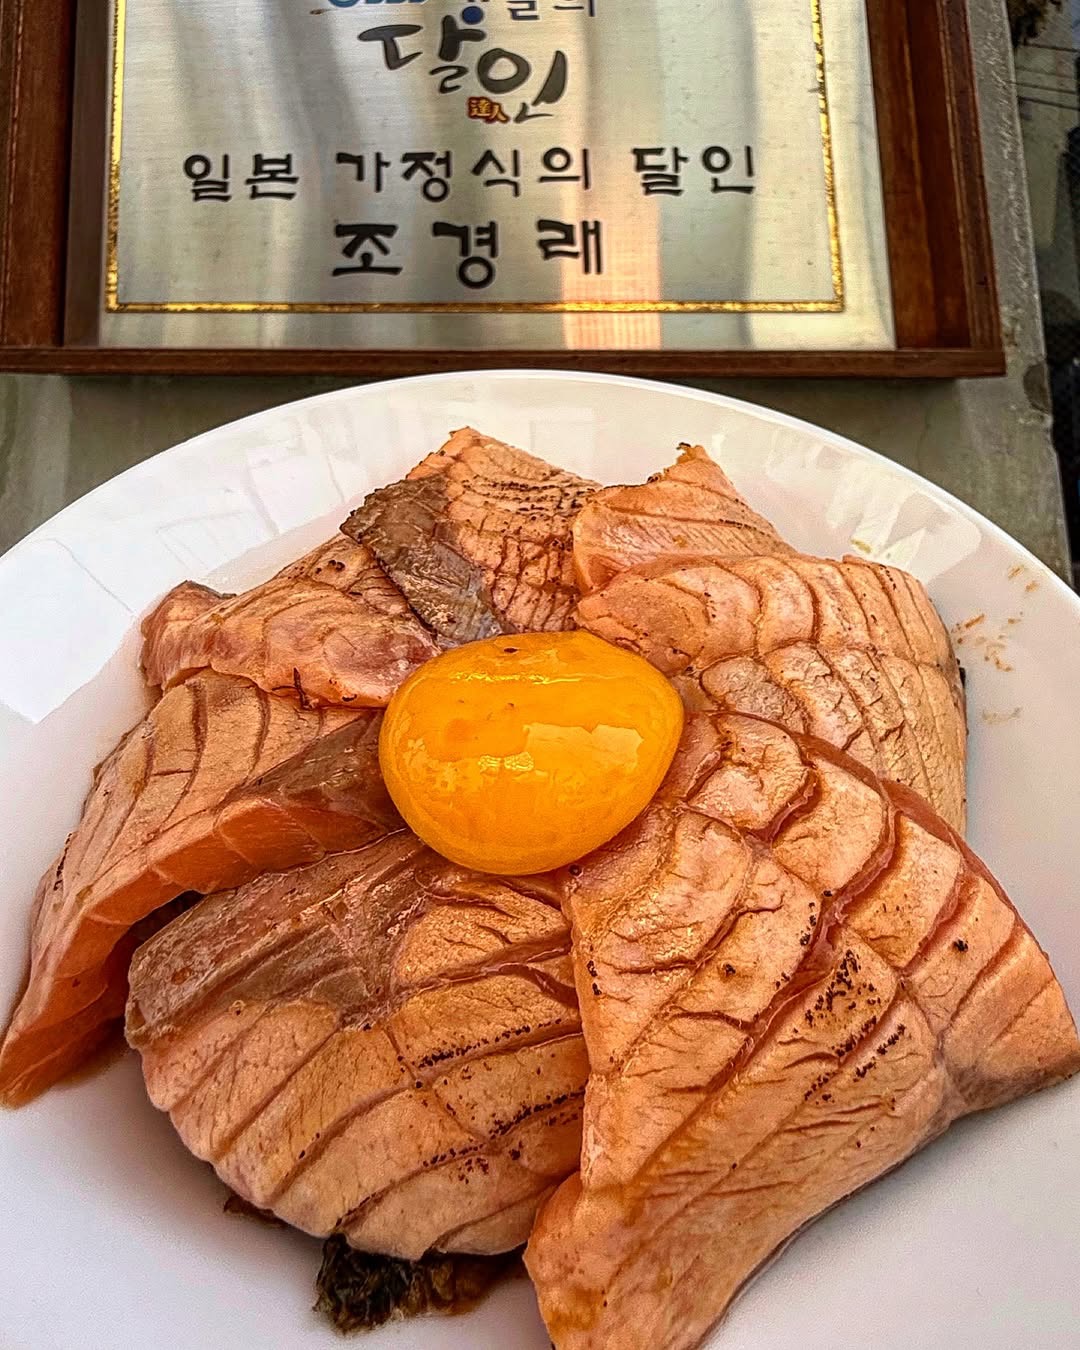 달인
達人
일본 가정식의 달인
조경래